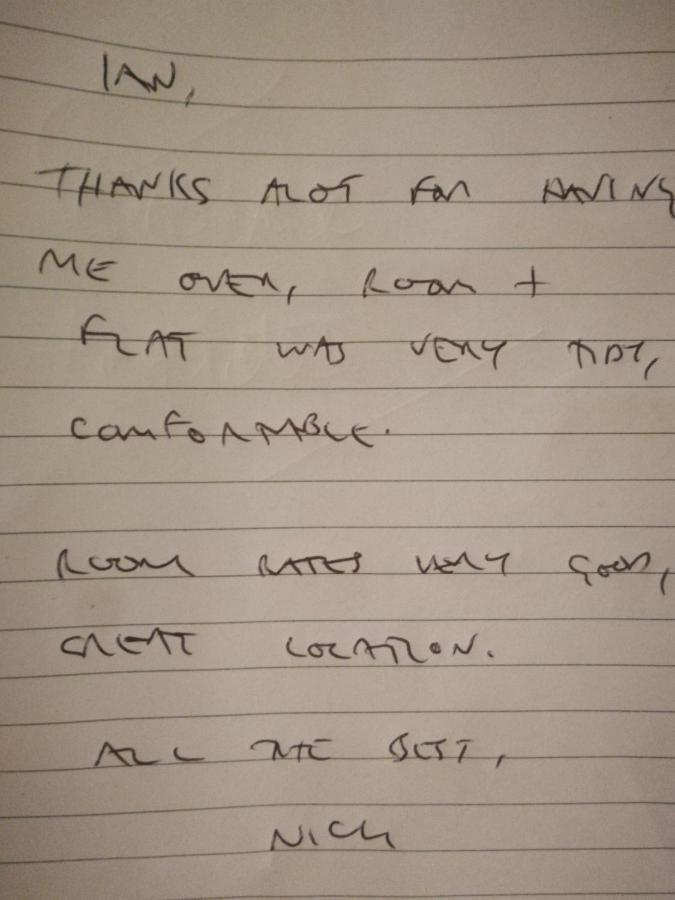 IAN,
THANKS ALOT FOR HAVING
ME OVER, ROOM +
FLAT WAS VERY TIDY,
COMFORTABLE.
ROOM RATES VERY GOOD,
GREAT LOCATION.
ALL THE BEST,
NICK